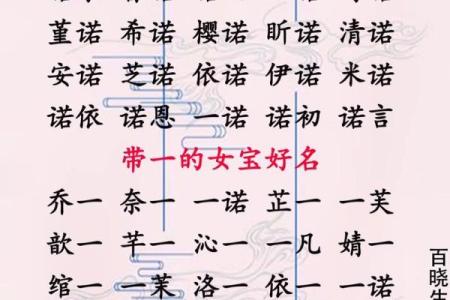 堇诺 希诺 樱诺 昕诺 清诺
安诺 芝诺 依诺 伊诺 米诺
诺依 诺恩 一诺 诺初 诺言
带一的女宝好名
乔一 奈一 一诺 芷一 一芙
歆一 芊一 沁一 一凡 婧一
绾一 一茉 洛一 依一 一诺
百晓生